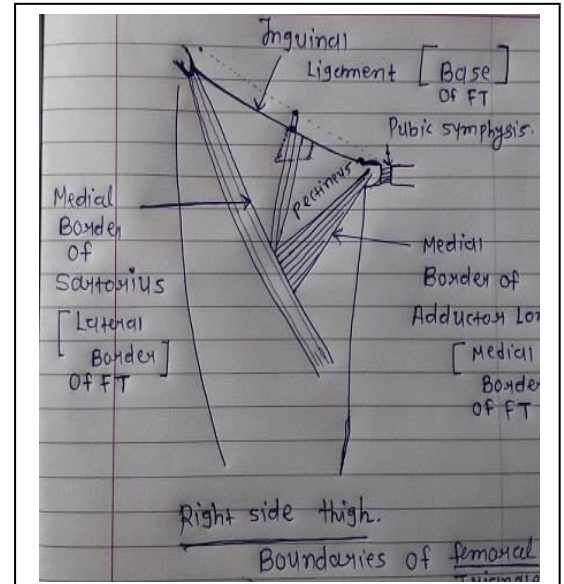 Inguinal
Ligament [Base]
OF FT
Pubic symphysis.
pectineus
Medial
Border
Of
Sartorius
[Lateral
Border]
Of FT
Medial
Border of
Adductor Lon
[Medial
Borde
OF FT
Right side thigh.
Boundaries of femoral
Triangle